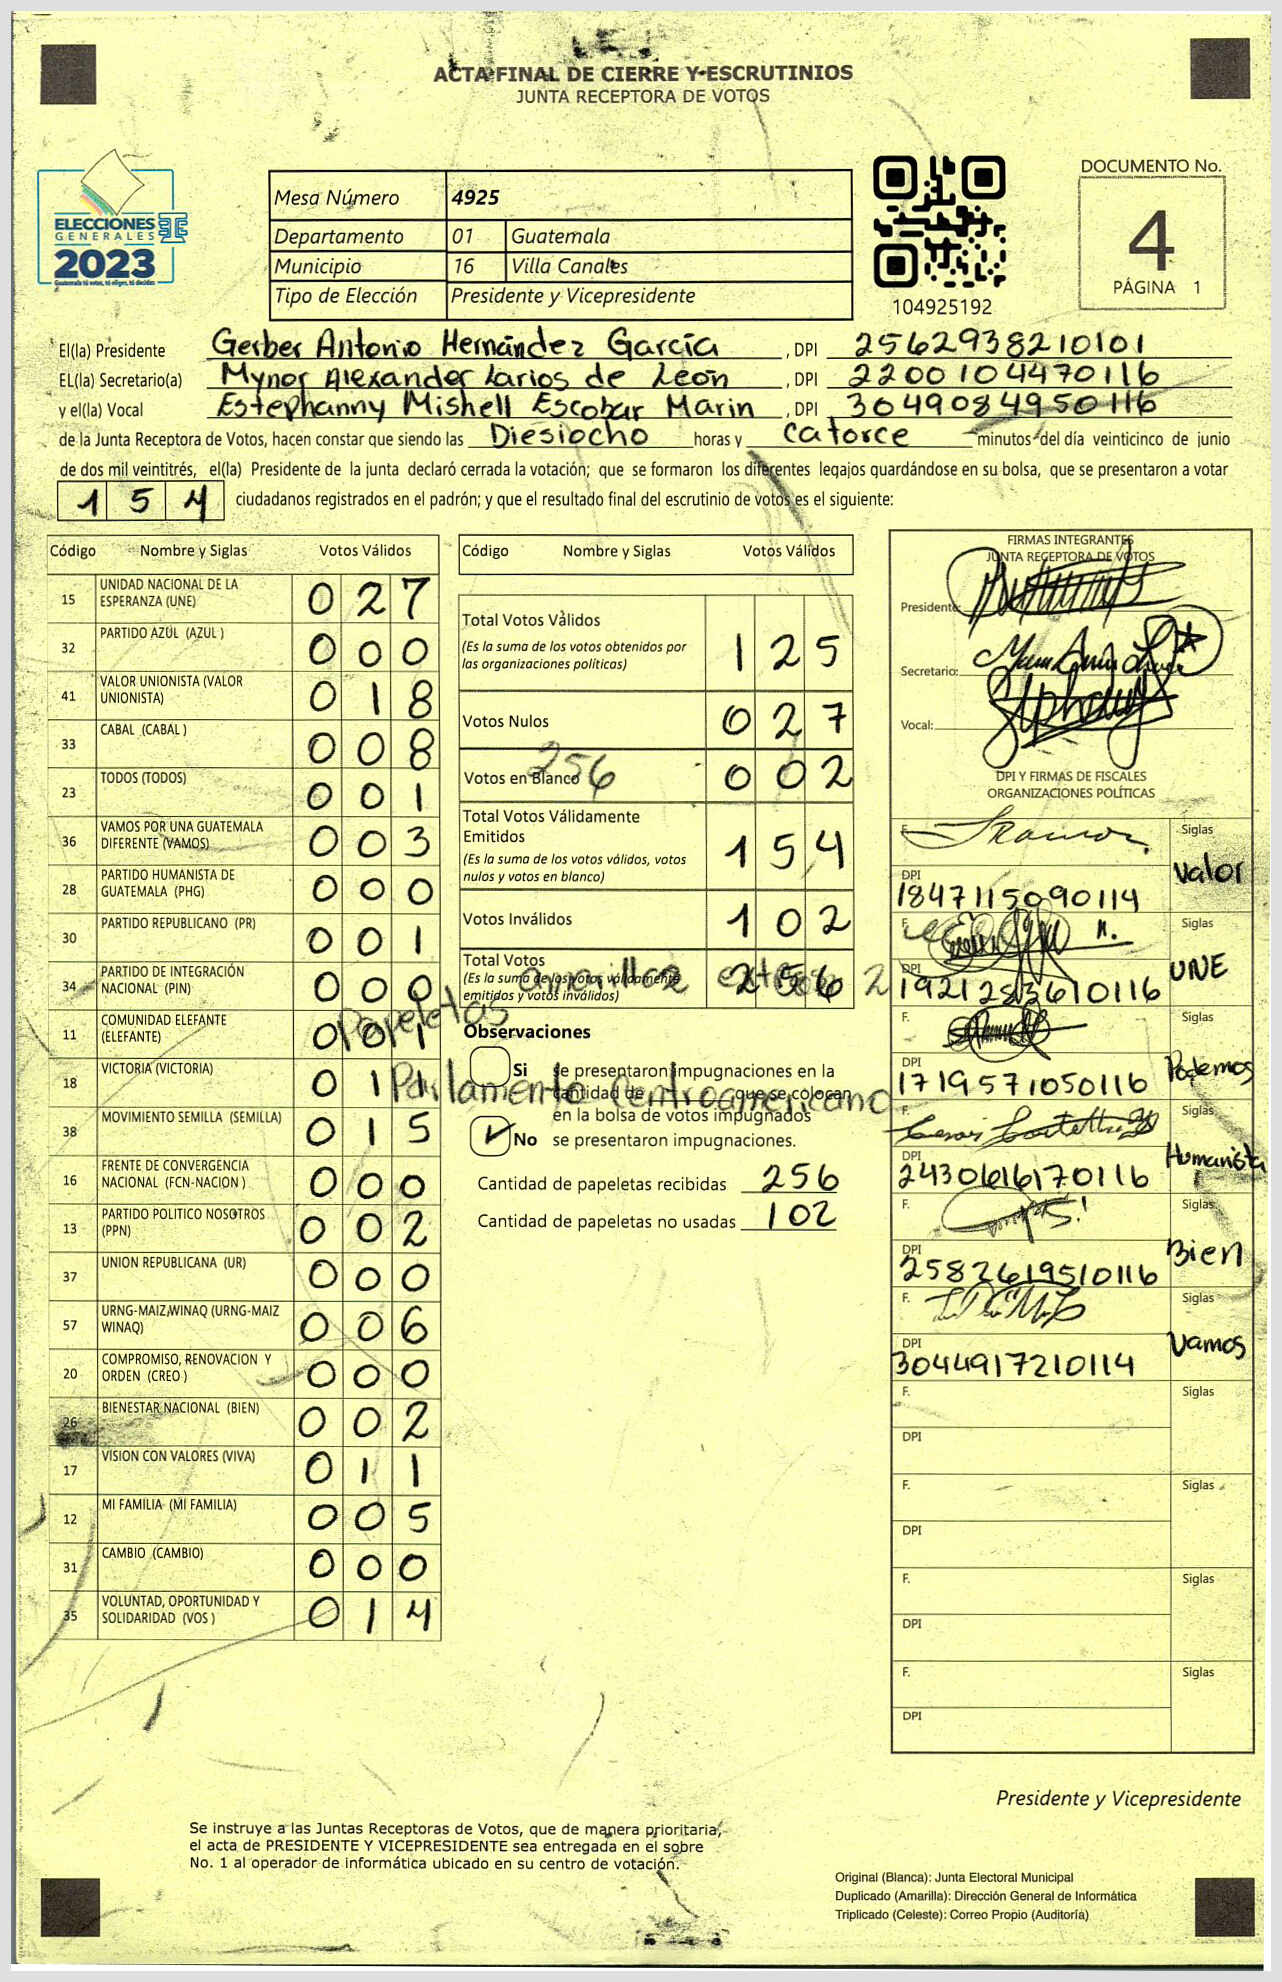 ACTA FINAL DE CIERRE Y ESCRUTINIOS
JUNTA RECEPTORA DE VOTOS
ELECCIONES
GENERALES
2023
Guatemala tú votas, tú eliges, tú decides
Mesa Número 4925
Departamento 01 Guatemala
Municipio 16 Villa Canales
Tipo de Elección Presidente y Vicepresidente
104925192
DOCUMENTO No.
4
PÁGINA 1
El(la) Presidente Gerber Antonio Hernández García , DPI 2562938210101
EL(la) Secretario(a) Mynor Alexander Larios de León , DPI 2200104470116
y el(la) Vocal Estephanny Mishell Escobar Marin , DPI 3049084950116
de la Junta Receptora de Votos, hacen constar que siendo las Diesiocho horas y catorce minutos del día veinticinco de junio
de dos mil veintitrés, el(la) Presidente de la junta declaró cerrada la votación; que se formaron los diferentes legajos guardándose en su bolsa, que se presentaron a votar
154 ciudadanos registrados en el padrón; y que el resultado final del escrutinio de votos es el siguiente:
Código Nombre y Siglas Votos Válidos
15 UNIDAD NACIONAL DE LA ESPERANZA (UNE) 027
32 PARTIDO AZUL (AZUL ) 000
41 VALOR UNIONISTA (VALOR UNIONISTA) 018
33 CABAL (CABAL ) 008
23 TODOS (TODOS) 001
36 VAMOS POR UNA GUATEMALA DIFERENTE (VAMOS) 003
28 PARTIDO HUMANISTA DE GUATEMALA (PHG) 000
30 PARTIDO REPUBLICANO (PR) 001
34 PARTIDO DE INTEGRACIÓN NACIONAL (PIN) 000
11 COMUNIDAD ELEFANTE (ELEFANTE) 001
18 VICTORIA (VICTORIA) 011
38 MOVIMIENTO SEMILLA (SEMILLA) 015
16 FRENTE DE CONVERGENCIA NACIONAL (FCN-NACION ) 000
13 PARTIDO POLITICO NOSOTROS (PPN) 002
37 UNION REPUBLICANA (UR) 000
57 URNG-MAIZ,WINAQ (URNG-MAIZ WINAQ) 006
20 COMPROMISO, RENOVACION Y ORDEN (CREO ) 000
26 BIENESTAR NACIONAL (BIEN) 002
17 VISION CON VALORES (VIVA) 011
12 MI FAMILIA (MI FAMILIA) 005
31 CAMBIO (CAMBIO) 000
35 VOLUNTAD, OPORTUNIDAD Y SOLIDARIDAD (VOS ) 014
Código Nombre y Siglas Votos Válidos
Total Votos Válidos 125
(Es la suma de los votos obtenidos por las organizaciones políticas)
Votos Nulos 027
256
Votos en Blanco 002
Total Votos Válidamente Emitidos 154
(Es la suma de los votos válidos, votos nulos y votos en blanco)
Votos Inválidos 102
Total Votos 256
(Es la suma de los votos válidamente emitidos y votos inválidos)
Papeletas 2
Parlamento Centroamericano
Observaciones
Si se presentaron impugnaciones en la
cantidad de que se colocan
en la bolsa de votos impugnados
No se presentaron impugnaciones.
Cantidad de papeletas recibidas 256
Cantidad de papeletas no usadas 102
FIRMAS INTEGRANTES
JUNTA RECEPTORA DE VOTOS
Presidente:
Secretario:
Vocal:
DPI Y FIRMAS DE FISCALES
ORGANIZACIONES POLÍTICAS
F. Siglas
DPI 1847115090114 Valor
F. Siglas
DPI 1921283610116 UNE
F. Siglas
DPI 1719571050116 Podemos
F. Siglas
DPI 2430616170116 Humanista
F. Siglas
DPI 2582619510116 Bien
F. Siglas
DPI 3044917210114 Vamos
F. Siglas
DPI
F. Siglas
DPI
F. Siglas
DPI
F. Siglas
DPI
Presidente y Vicepresidente
Se instruye a las Juntas Receptoras de Votos, que de manera prioritaria,
el acta de PRESIDENTE Y VICEPRESIDENTE sea entregada en el sobre
No. 1 al operador de informática ubicado en su centro de votación.
Original (Blanca): Junta Electoral Municipal
Duplicado (Amarilla): Dirección General de Informática
Triplicado (Celeste): Correo Propio (Auditoría)